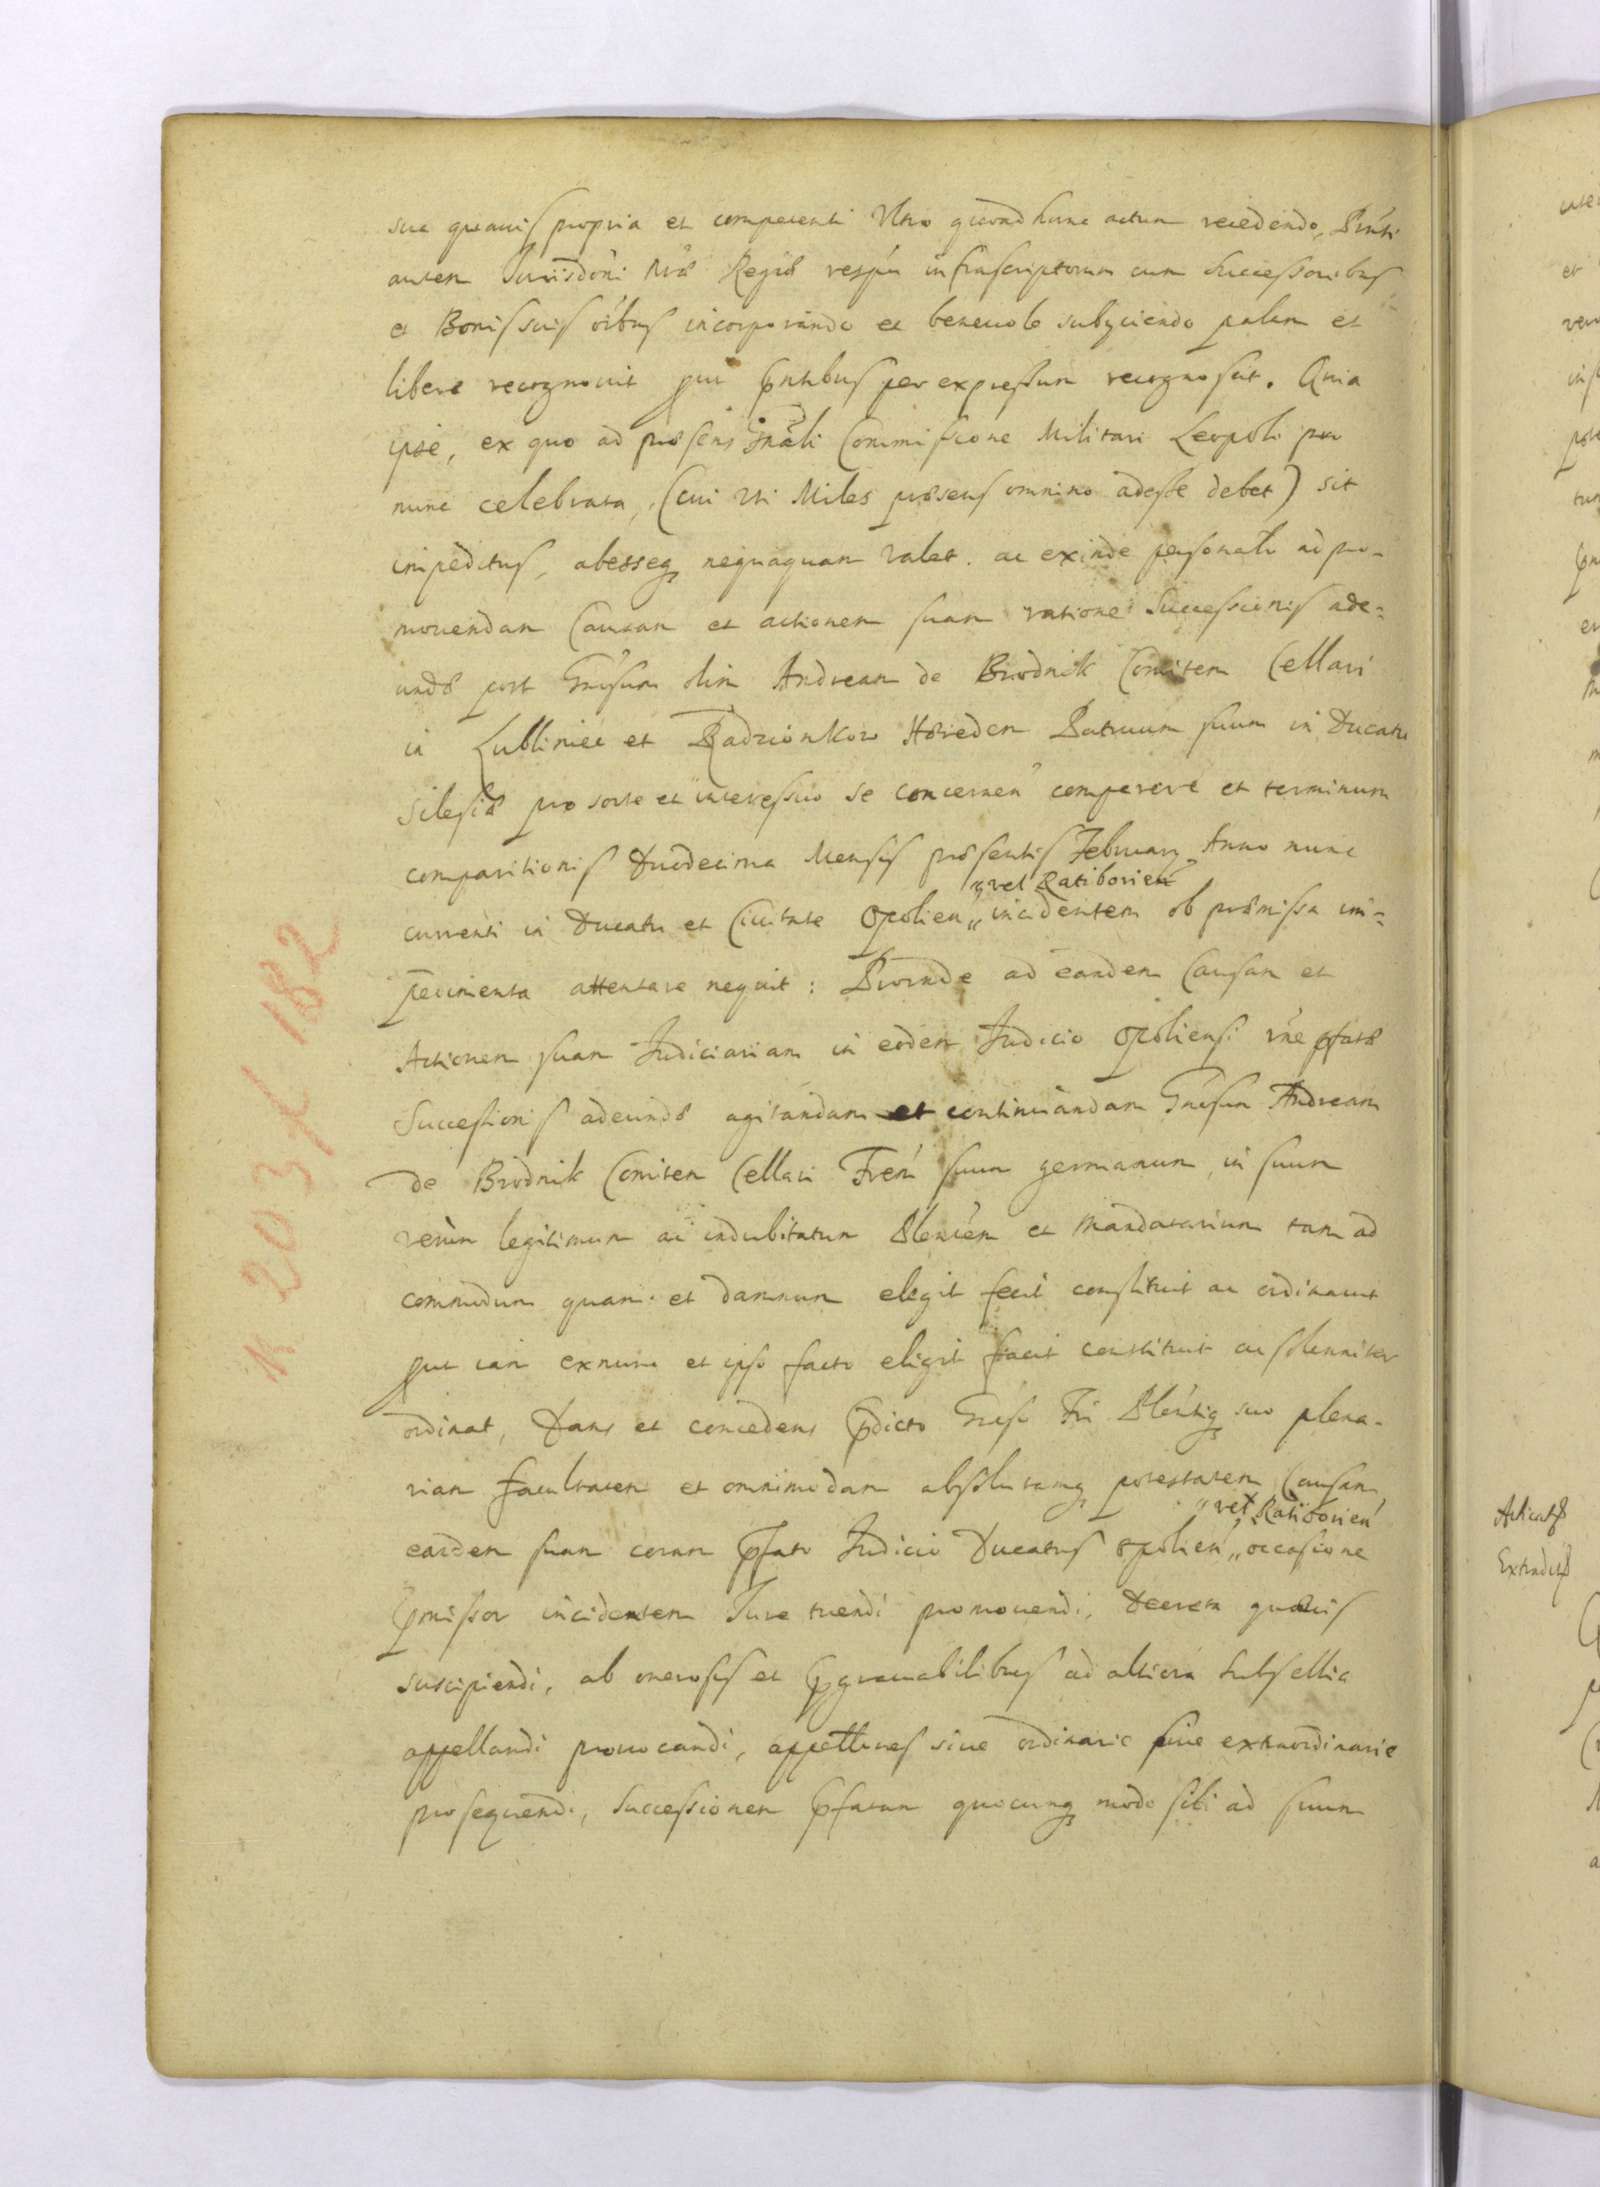 sua quauis propria et competenti Vltro quoad hunc actum recedendo, Pńti
autem Jurisdōni Mtis Regiæ respectu infrascriptorum cum Successoribus
et Bonis suis oībus incorporando et beneuole subyciendo palam et
libere recognouit prut pńtibus per expressum recognoscit. Quia
ipse, ex quo ad præsens Gnāli Commissione Militari Leopoli pro
nunc celebrata, (cui vti Miles præsens omnino adesse debet) sit
impeditus, abesseq nequaquam valet. ac exinde personatr ad pro-
mouendam Causam et actionem suam ratione Successionis ade-
undæ post Gńsum olim Andream de Brodnik Comitem Cellari
in Lubliniec et Radzionkow Hæredem Patruum suum in Ducatu
Silesiæ pro sorte et interessio se concernen comperere et terminum
comparitionis Duodecima Mensis præsentis February Anno nunc
currenti in Ducatu et Ciuitate Opolien „vel Ratiborien incidentem ob præmissa im-
pedimenta attentare nequit: Proinde ad eandem Causam et
Actionem suam Judiciariam in eodem Judicio Opoliensi rńe pfatæ
Successionis adeundæ agitandam et continuandam Gńsum Andream
de Brodnik Comitem Cellari Frem suum germanum, in suum
verum legitimum ac indubitatum Plenień et Mandatarium tam ad
commodum quam et damnum elegit fecit constituit ac ordinauit
prut iam exnunc et ipso facto eligit facit constituit ac solenniter
ordinat, Dans et concedens pdicto Gńso Fri Pleńtiq suo plena-
riam facultatem et omnimodam absolutamq potestatem Causam
eandem suam coram pfato Judicio Ducatus Opolień „vel Ratiborień occasione
pmissor incidentem Jure tuendi promouendi, Decreta quæuis
suscipiendi, ab onerosis et pgrauabilibus ad altiora Subsellia
appellandi prouocandi, appellnes siue ordinarie siue extraordinarie
prosequendi, Successionem pfatam quocunq modo sibi ad suum
R 203 f 182